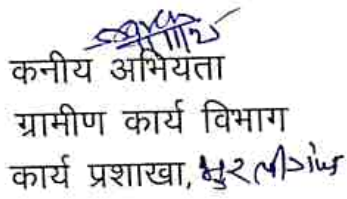 कनीय अभियता
ग्रामीण कार्य विभाग
कार्य प्रशाखा, मुरलीगंज